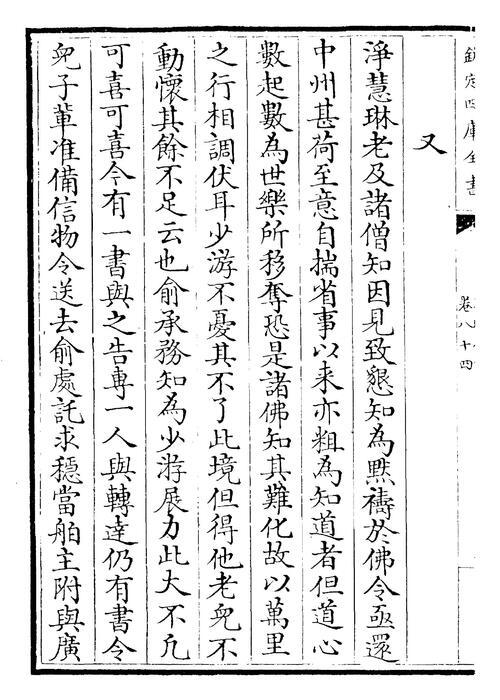 欽定四庫全書
卷八十四
又
淨慧琳老及諸僧知因見致懇知為黙禱於佛令亟還
中州甚荷至意自揣省事以来亦粗為知道者但道心
數起數為世樂所移奪恐是諸佛知其難化故以萬里
之行相調伏耳少游不憂其不了此境但得他老兒不
動懷其餘不足云也俞承務知為少游展力此大不凡
可喜可喜今有一書與之告專一人與轉達仍有書令
兒子輩准備信物令送去俞處託求穩當舶主附與廣